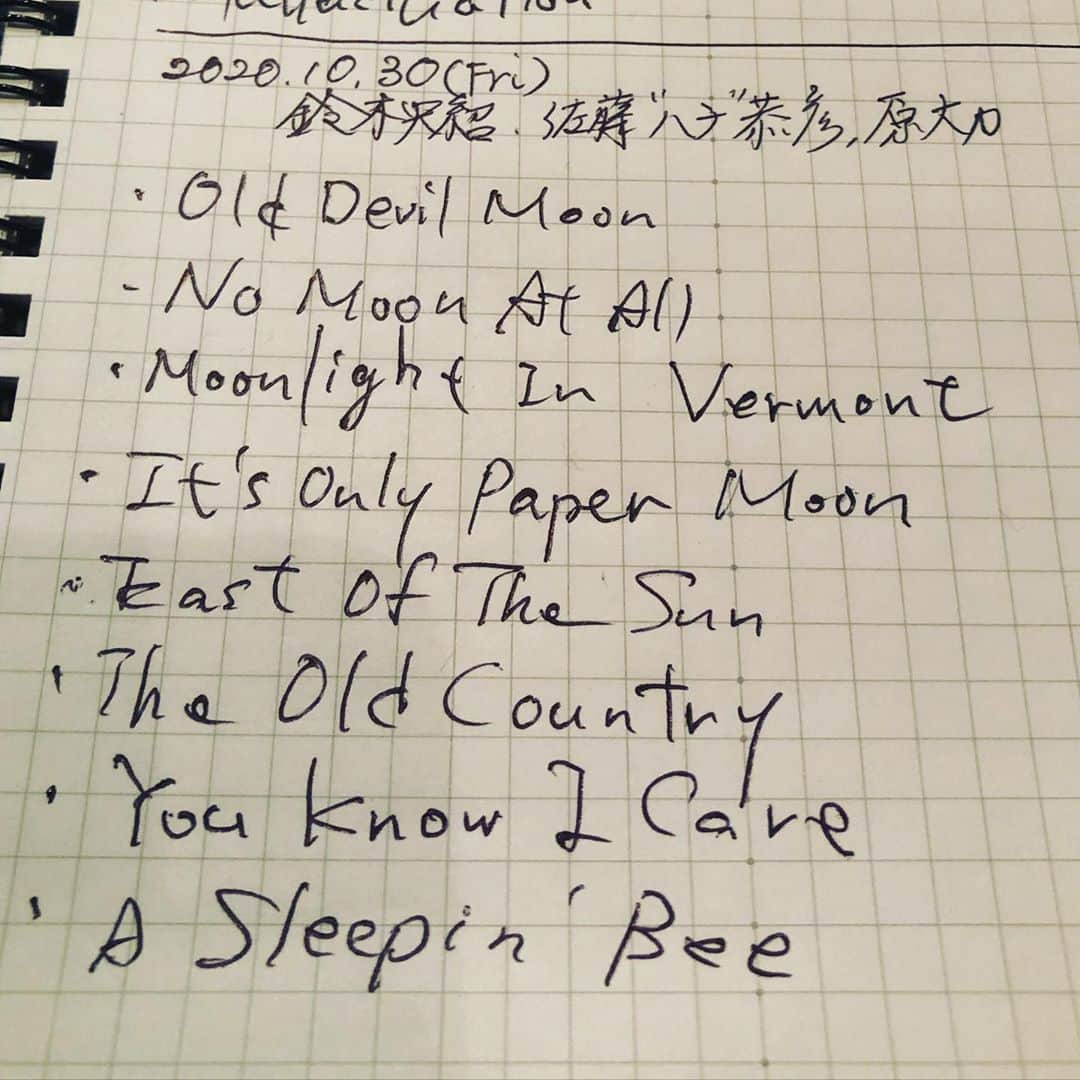 2020.10.30(Fri)
鈴木央紹. 佐藤"ハチ"恭彦, 原大力
・Old Devil Moon
- No Moon At All
・Moonlight In Vermont
・It's Only Paper Moon
・East Of The Sun
・The Old Country
・You Know I Care
・A Sleepin' Bee